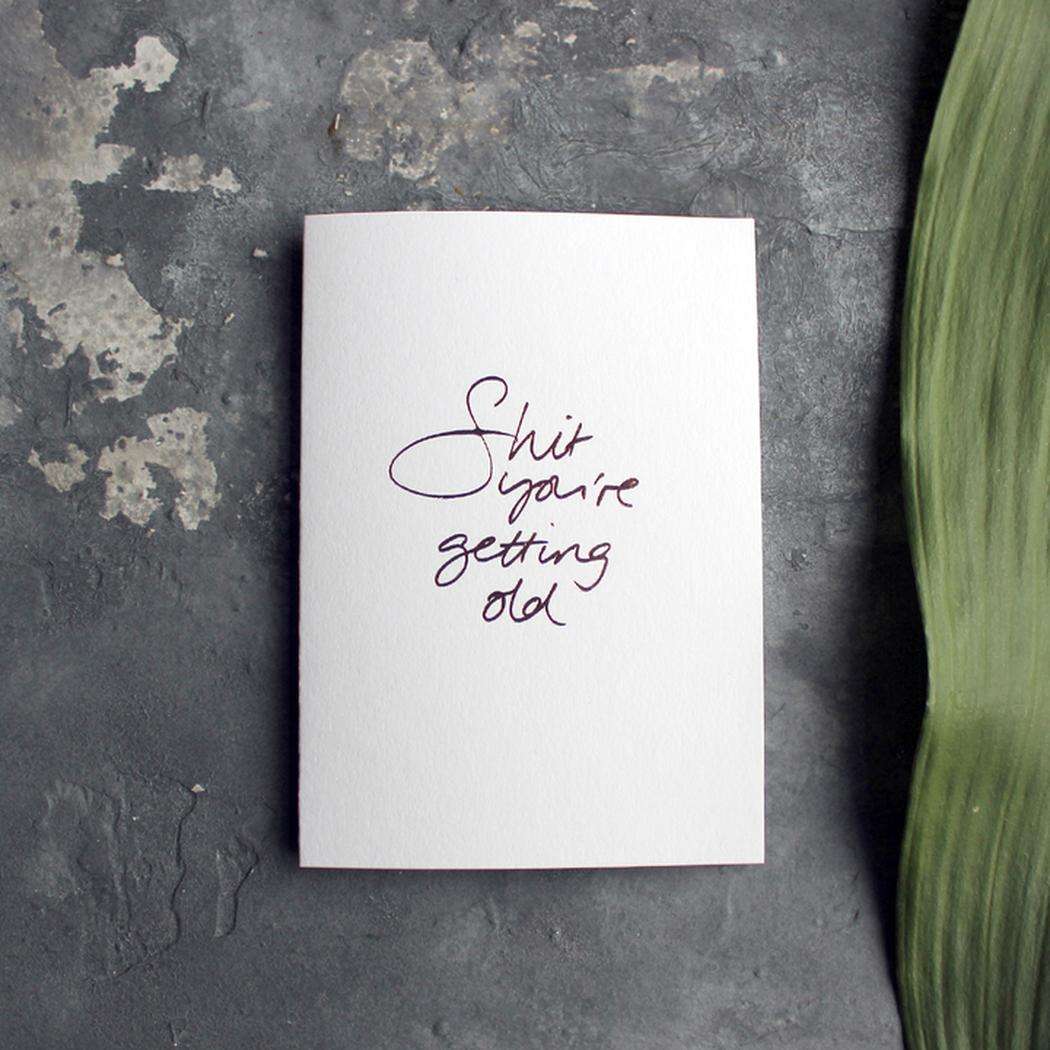 Shit
you're
getting
old